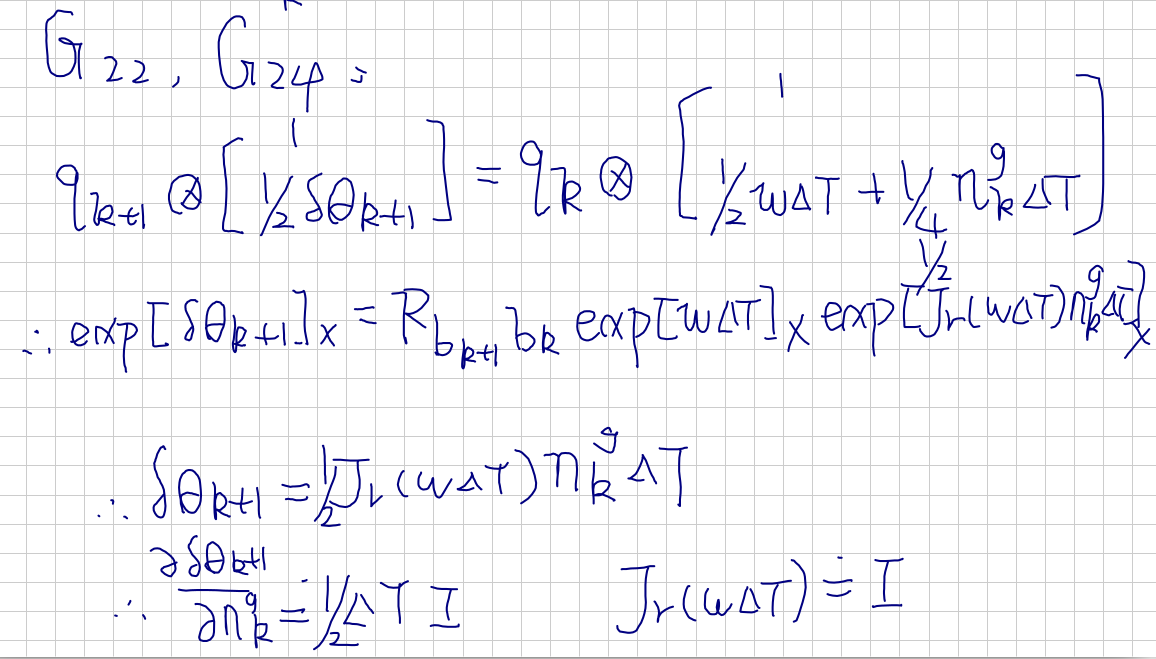 G₂₂, G₂₄ :
q_{k+1} ⊗ [1 ; 1/2 δθ_{k+1}] = q_k ⊗ [1 ; 1/2 wΔT + 1/4 n_k^g ΔT]
∴ exp[δθ_{k+1}]_× = R_{b_{k+1} b_k} exp[wΔT]_× exp[1/2 J_r(wΔT) n_k^g ΔT]_×
∴ δθ_{k+1} = 1/2 J_r(wΔT) n_k^g ΔT
∴ ∂δθ_{k+1} / ∂n_k^g ≐ 1/2 ΔT I    J_r(wΔT) ≐ I